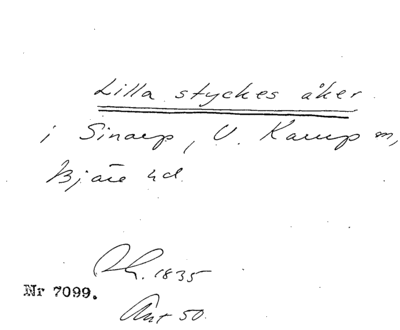 Lilla styckes åker
i Sinarp, V. Karup sn,
Bjäre hd.
Sk. 1835
Nr 7099.
Ant 50.